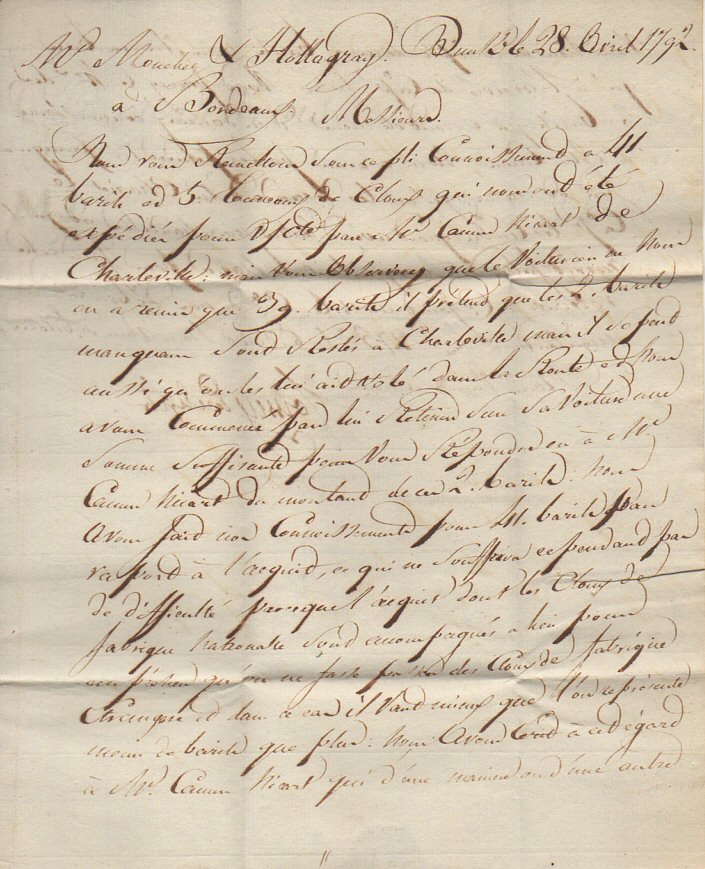 Mrs Mouchez & Hollagray. Dunkle 28. Avril 1792.
à Bordeaux Messieurs.
Nous vous Remettons sous ce pli Connoissement a 41
barils et 5 boucauts de Cloux qui nous ont été
expédiés pour v/ Cte par Mr Camus Nicart de
Charleville. mais vous observerez que le Voiturier ne nous
en a remis que 39. barils il pretend que les 2. barils
manquans sont Restés a Charleville mais il se peut
aussi qu'on les lui ait volé dans la Route et nous
avons Commencé par lui Retenir sur sa Voiture une
somme suffisante pour vous Répondre ou à Mr
Camus Nicart du montant de ces 2. barils. nous
avons fait nos Connoissements pour 41. barils par
raport à l'acquit, ce qui ne souffrira cependant pas
de difficulté parceque l'acquit dont les Cloux de
fabrique nationale sont accompagnés a lieu pour
empêcher qu'on ne fasse passer des Cloux de fabrique
Etrangere et dans ce cas il vaut mieux que l'on représente
moins de barils que plus. nous avons Ecrit à cet égard
à Mr. Camus Nicart qui d'une maniere ou d'une autre